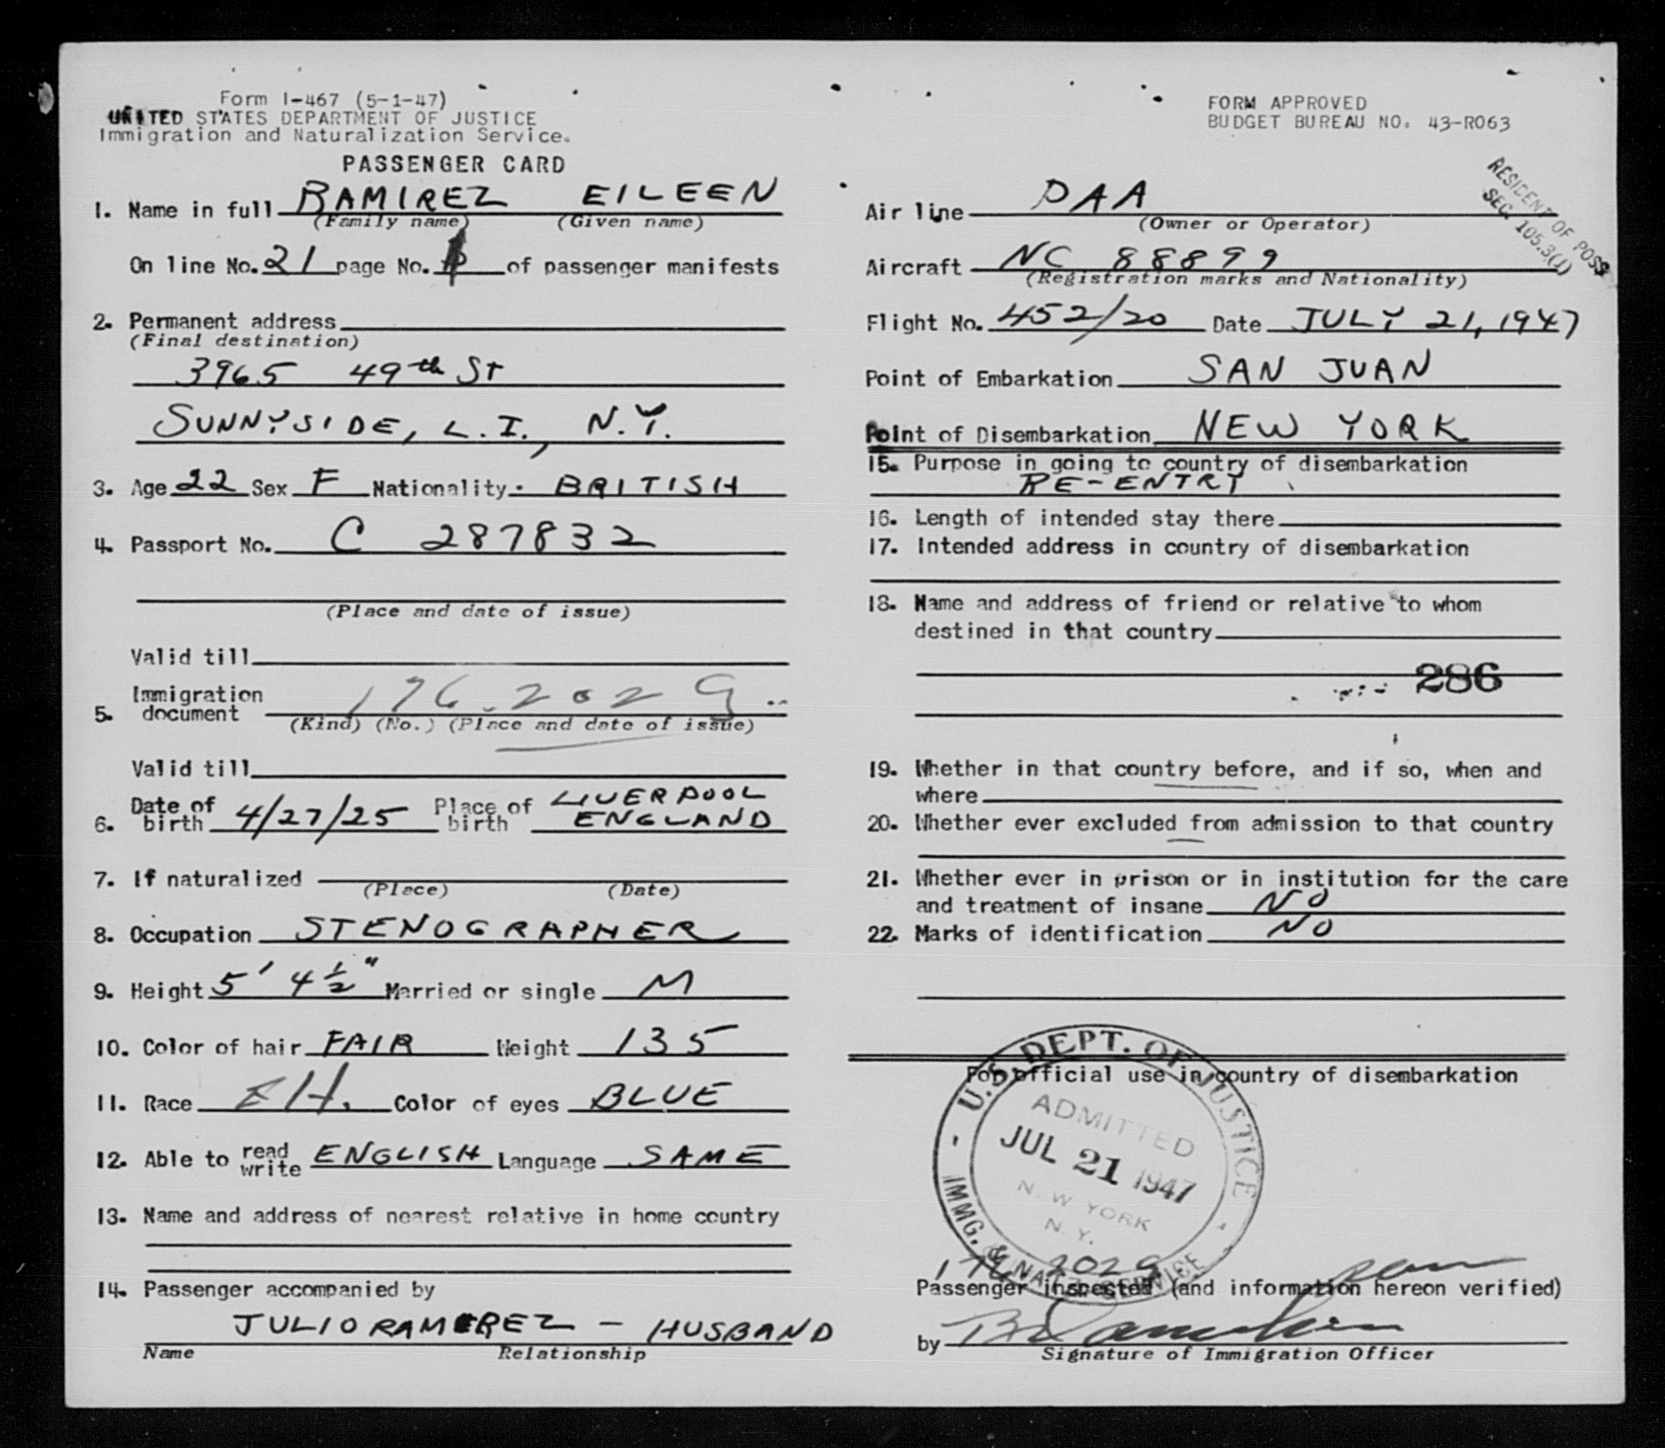 Form I-467 (5-1-47)
UNITED STATES DEPARTMENT OF JUSTICE
Immigration and Naturalization Service.
PASSENGER CARD
1. Name in full RAMIREZ EILEEN
(Family name) (Given name)
On line No. 21 page No. of passenger manifests
2. Permanent address
(Final destination)
3965 49th St
SUNNYSIDE, L.I., N.Y.
3. Age 22 Sex F Nationality BRITISH
4. Passport No. C 287832
(Place and date of issue)
Valid till
5. Immigration document 176.2029
(Kind) (No.) (Place and date of issue)
Valid till
6. Date of birth 4/27/25 Place of birth LIVERPOOL ENGLAND
7. If naturalized
(Place) (Date)
8. Occupation STENOGRAPHER
9. Height 5' 4½" Married or single M
10. Color of hair FAIR Weight 135
11. Race Color of eyes BLUE
12. Able to read write ENGLISH Language SAME
13. Name and address of nearest relative in home country
14. Passenger accompanied by
JULIO RAMEREZ - HUSBAND
Name Relationship
FORM APPROVED
BUDGET BUREAU NO. 43-R063
RESIDENT OF POSS
SEC. 105.3(1)
Air line PAA
(Owner or Operator)
Aircraft NC 88899
(Registration marks and Nationality)
Flight No. 452/20 Date JULY 21, 1947
Point of Embarkation SAN JUAN
Point of Disembarkation NEW YORK
15. Purpose in going to country of disembarkation
RE-ENTRY
16. Length of intended stay there
17. Intended address in country of disembarkation
18. Name and address of friend or relative to whom
destined in that country
286
19. Whether in that country before, and if so, when and
where
20. Whether ever excluded from admission to that country
21. Whether ever in prison or in institution for the care
and treatment of insane NO
22. Marks of identification NO
For official use in country of disembarkation
U.S. DEPT. OF JUSTICE
ADMITTED
JUL 21 1947
NEW YORK
N. Y.
IMMG. & NATZ. SERVICE
176 2029
Passenger inspected (and information hereon verified)
by
Signature of Immigration Officer